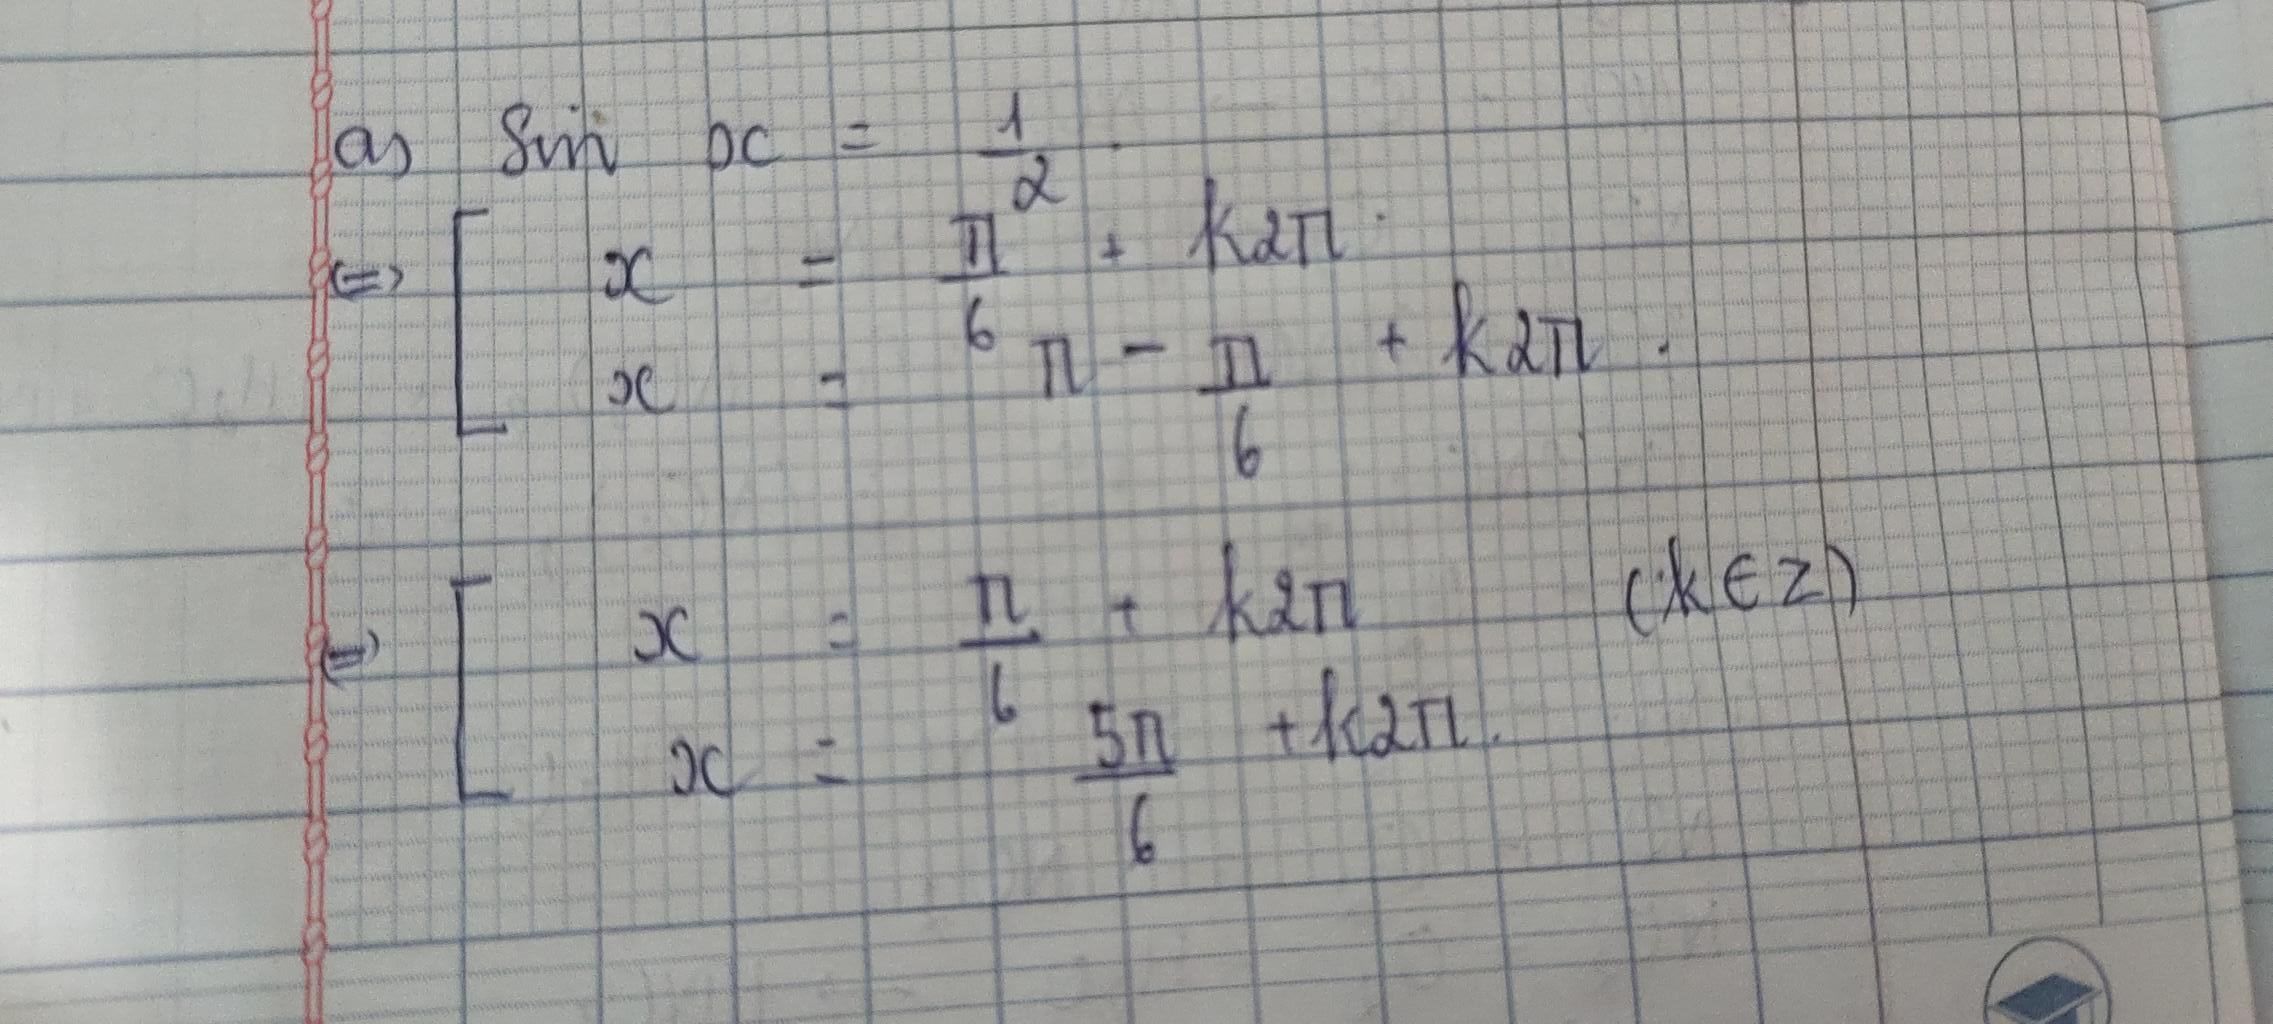 a) Sin x = 1/2.
⇔ [ x = π/6 + k2π.
x = π - π/6 + k2π.
⇔ [ x = π/6 + k2π (k ∈ Z)
x = 5π/6 + k2π.